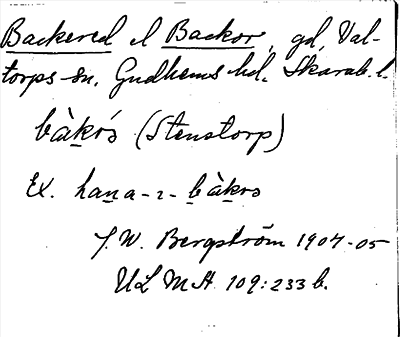 Backered el Backor, gd, Val-
torps sn. Gudhems hd. Skarab. l.
bàkrs (Stenstorp)
Ex. hana-ı-bàkrs
J. W. Bergström 1904-05
ULMA 109:233 b.